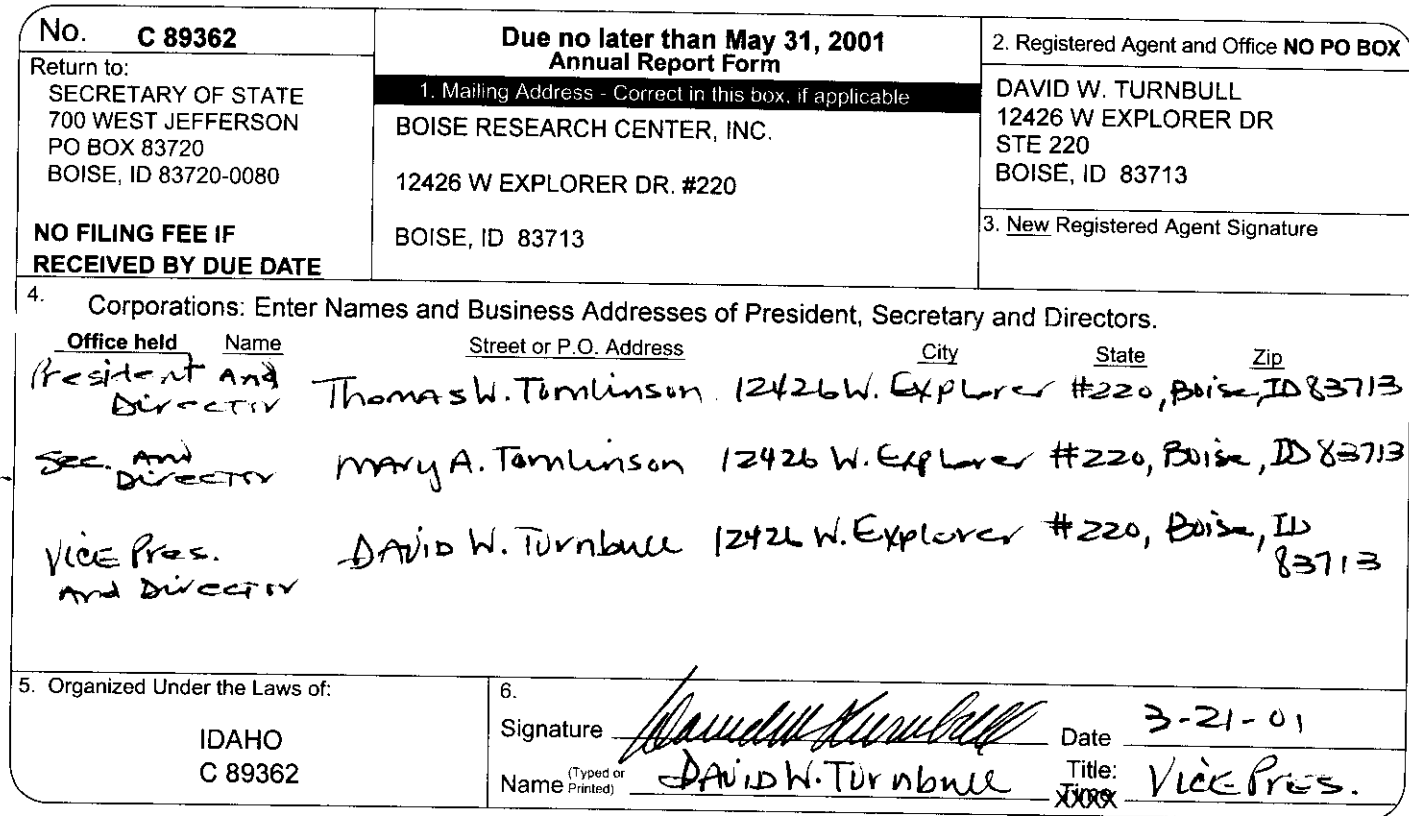 No. C 89362
Return to:
SECRETARY OF STATE
700 WEST JEFFERSON
PO BOX 83720
BOISE, ID 83720-0080
NO FILING FEE IF
RECEIVED BY DUE DATE
Due no later than May 31, 2001
Annual Report Form
1. Mailing Address - Correct in this box, if applicable
BOISE RESEARCH CENTER, INC.
12426 W EXPLORER DR. #220
BOISE, ID 83713
2. Registered Agent and Office NO PO BOX
DAVID W. TURNBULL
12426 W EXPLORER DR
STE 220
BOISE, ID 83713
3. New Registered Agent Signature
4. Corporations: Enter Names and Business Addresses of President, Secretary and Directors.
Office held Name Street or P.O. Address City State Zip
President And
Director Thomas W. Tomlinson 12426 W. Explorer #220, Boise, ID 83713
Sec. And
Director Mary A. Tomlinson 12426 W. Explorer #220, Boise, ID 83713
Vice Pres. David W. Turnbull 12426 W. Explorer #220, Boise, ID
And Director 83713
5. Organized Under the Laws of:
IDAHO
C 89362
6.
Signature David W Turnbull Date 3-21-01
Name (Typed or Printed) David W. Turnbull Title: Vice Pres.